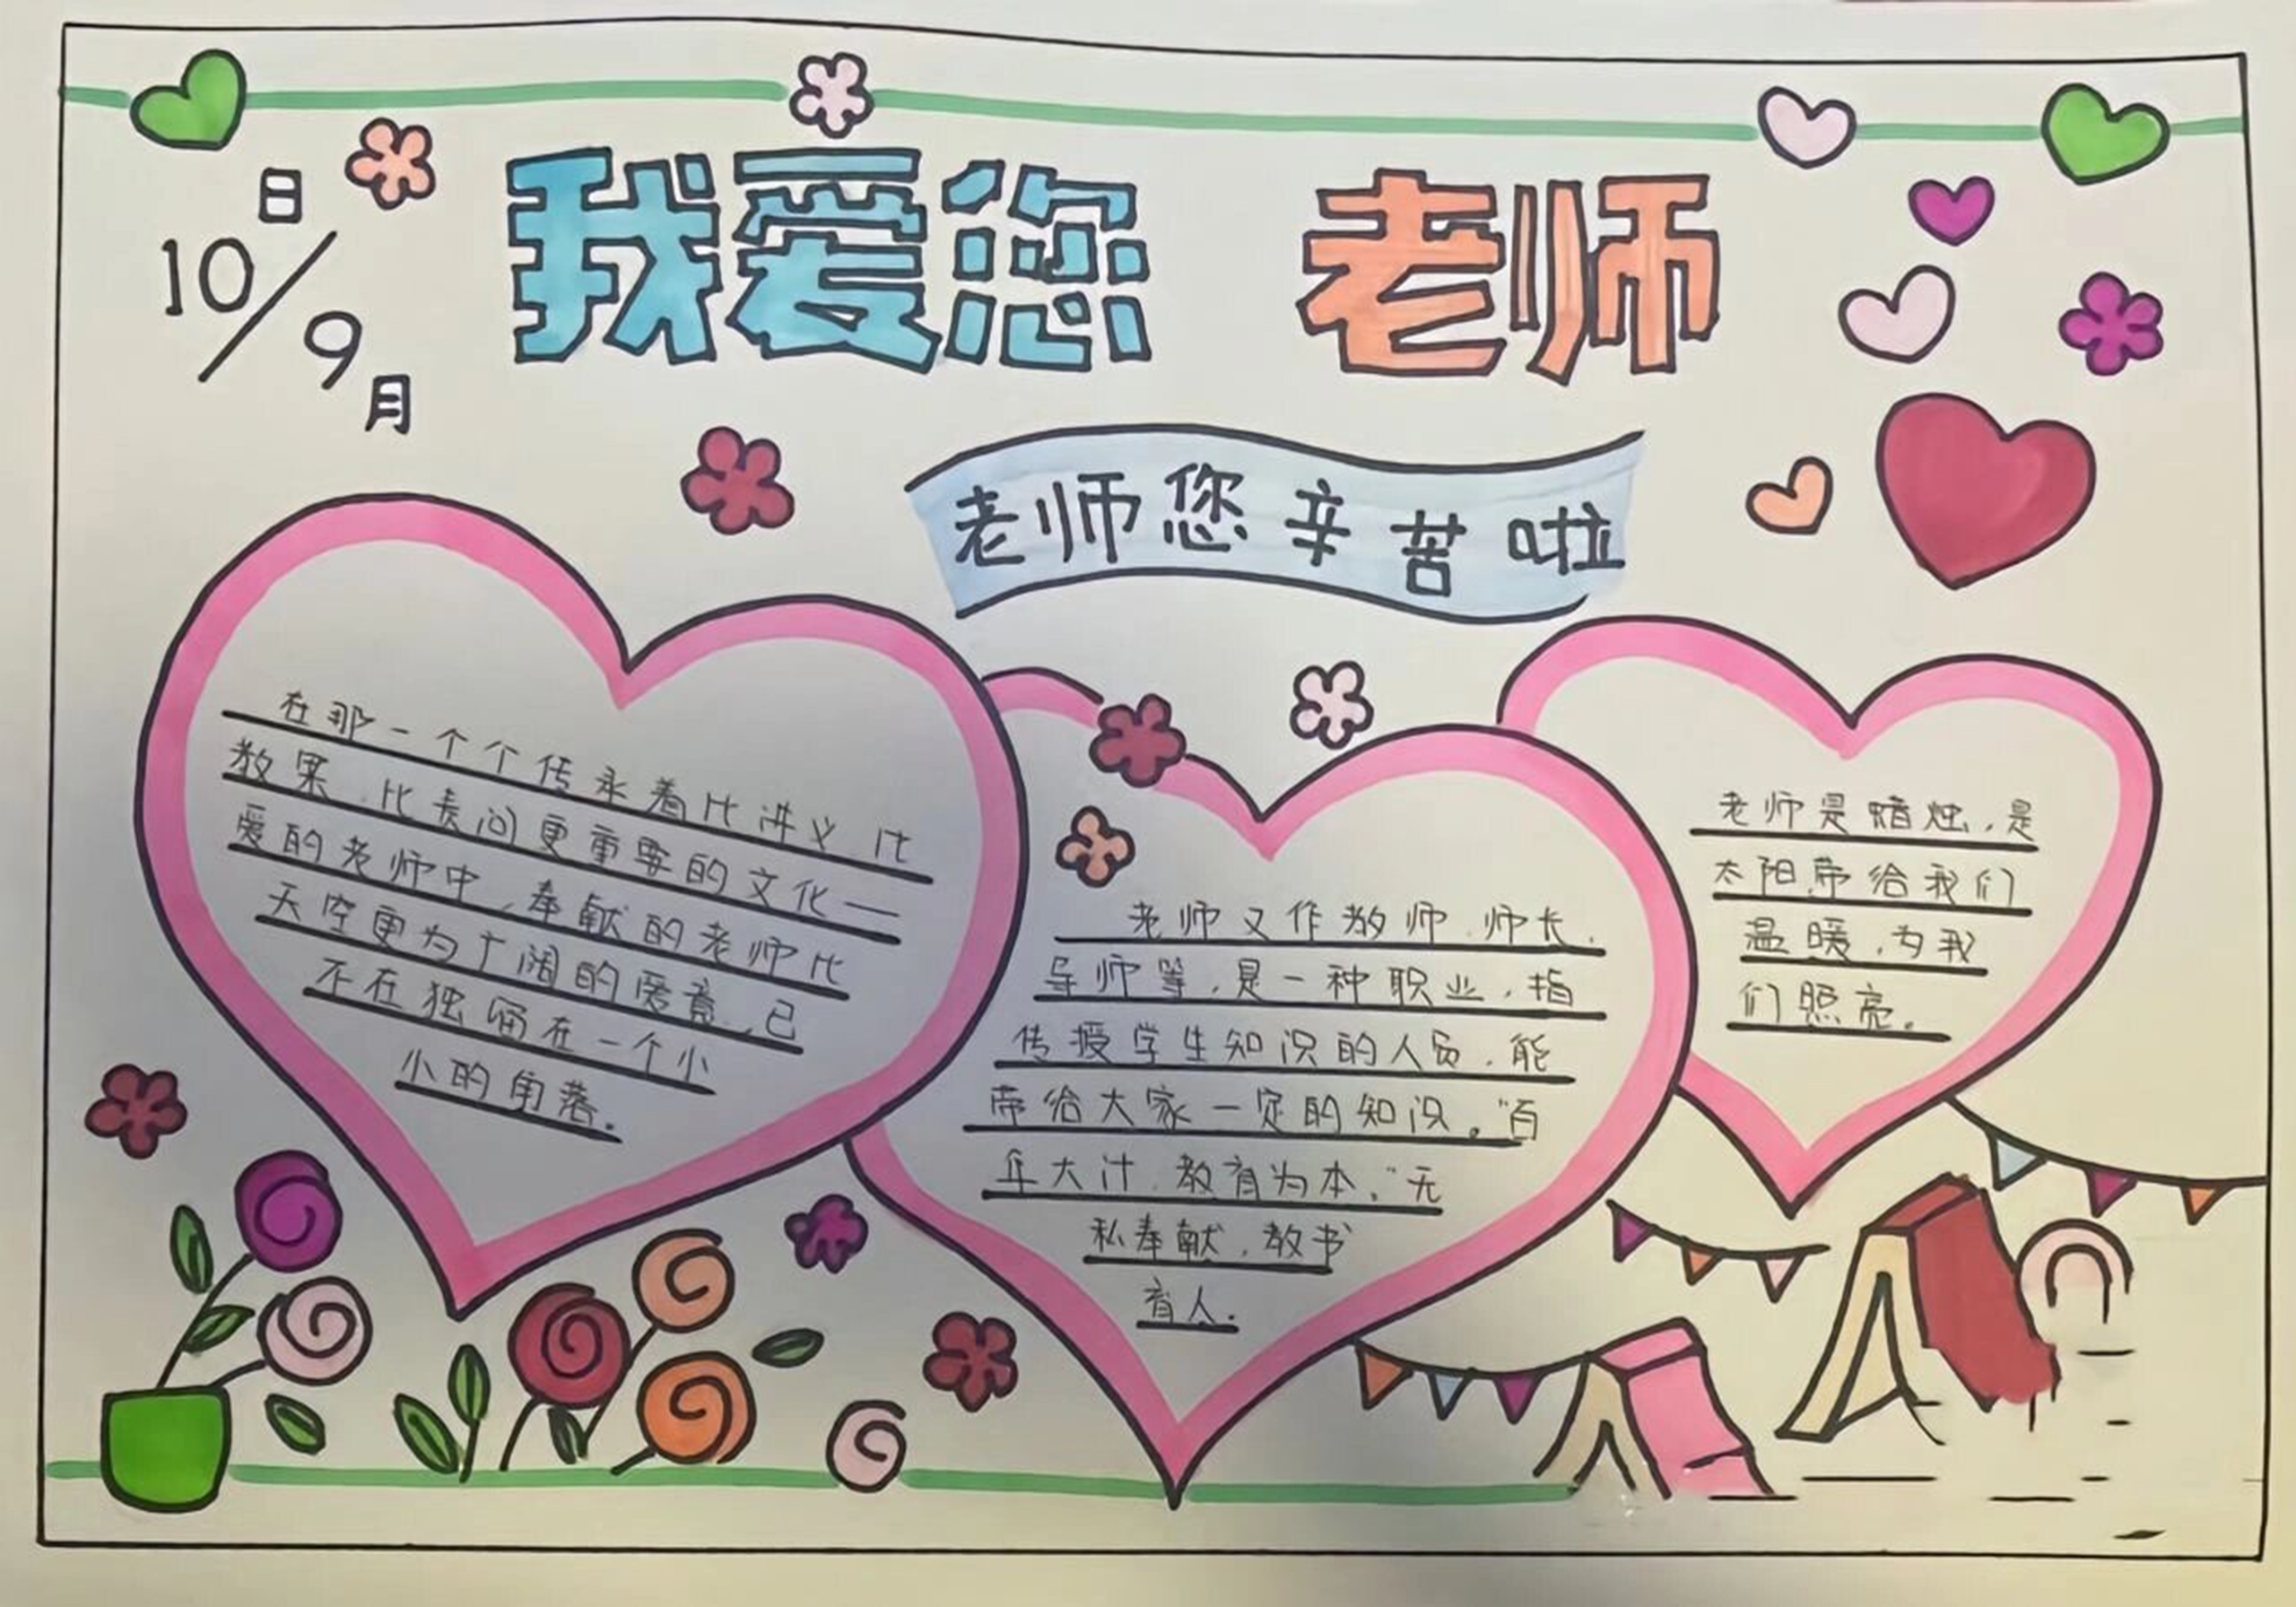 日
10/9
月
我爱您 老师
老师您辛苦啦
在那一个个传承着比讲义 比
教案、比表问更重要的文化一
爱的老师中，奉献的老师比
天空更为广阔的爱意，已
不在独
在一个小
小的角落。
老师又作教师、师长、
导师等，是一种职业，指
传授学生知识的人员，能
带给大家一定的知识。“百
年大计、教育为本，”无
私奉献，教书
育人。
老师是蜡烛，是
太阳、带给我们
温暖，为我
们照亮。